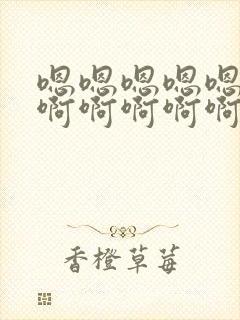 嗯嗯嗯嗯嗯
啊啊啊啊啊
香橙草莓